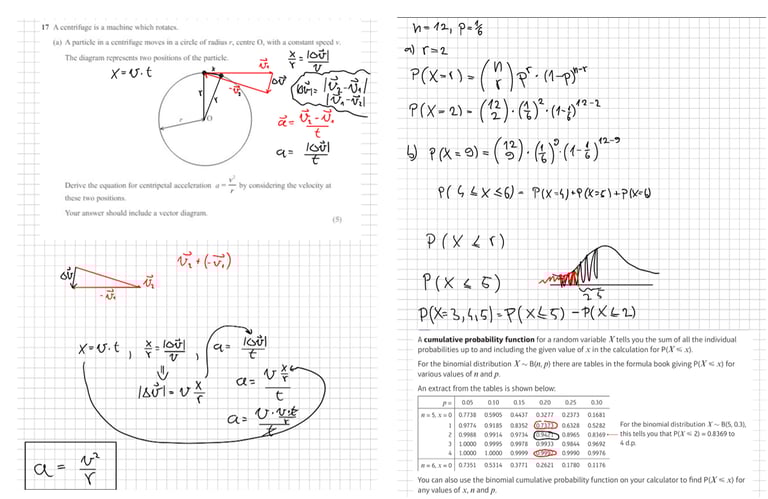 17 A centrifuge is a machine which rotates.
(a) A particle in a centrifuge moves in a circle of radius r, centre O, with a constant speed v.
The diagram represents two positions of the particle.
x = v · t
x/r = |Δv⃗|/v
|Δv⃗| = |v⃗₂ - v⃗₁|
|v⃗₁ - v⃗₂|
a⃗ = (v⃗₂ - v⃗₁)/t
a = |Δv⃗|/t
x
v⃗₁
-v⃗₂
Δv⃗
r
r
r
O
Derive the equation for centripetal acceleration a = v²/r by considering the velocity at
these two positions.
Your answer should include a vector diagram.
(5)
v⃗₂ + (-v⃗₁)
Δv⃗
v⃗₂
-v⃗₁
x = v · t , x/r = |Δv⃗|/v , a = |Δv⃗|/t
|Δv⃗| = v x/r
a = v x/r / t
a = v · v·t/r / t
a = v²/r
n = 12, p = 1/6
a) r = 2
P(X = r) = (n r) pʳ · (1-p)ⁿ⁻ʳ
P(X = 2) = (12 2) · (1/6)² · (1-1/6)¹²⁻²
b) P(X = 9) = (12 9) · (1/6)⁹ · (1-1/6)¹²⁻⁹
P(4 ≤ X ≤ 6) = P(X=4) + P(X=5) + P(X=6)
P(X ≤ r)
P(X ≤ 5)
2 5
P(X = 3,4,5) = P(X ≤ 5) - P(X ≤ 2)
A cumulative probability function for a random variable X tells you the sum of all the individual
probabilities up to and including the given value of x in the calculation for P(X ≤ x).
For the binomial distribution X ~ B(n, p) there are tables in the formula book giving P(X ≤ x) for
various values of n and p.
An extract from the tables is shown below:
p = 0.05 0.10 0.15 0.20 0.25 0.30
n = 5, x = 0 0.7738 0.5905 0.4437 0.3277 0.2373 0.1681
1 0.9774 0.9185 0.8352 0.7373 0.6328 0.5282
2 0.9988 0.9914 0.9734 0.9421 0.8965 0.8369
3 1.0000 0.9995 0.9978 0.9933 0.9844 0.9692
4 1.0000 1.0000 0.9999 0.9997 0.9990 0.9976
n = 6, x = 0 0.7351 0.5314 0.3771 0.2621 0.1780 0.1176
For the binomial distribution X ~ B(5, 0.3),
this tells you that P(X ≤ 2) = 0.8369 to
4 d.p.
You can also use the binomial cumulative probability function on your calculator to find P(X ≤ x) for
any values of x, n and p.